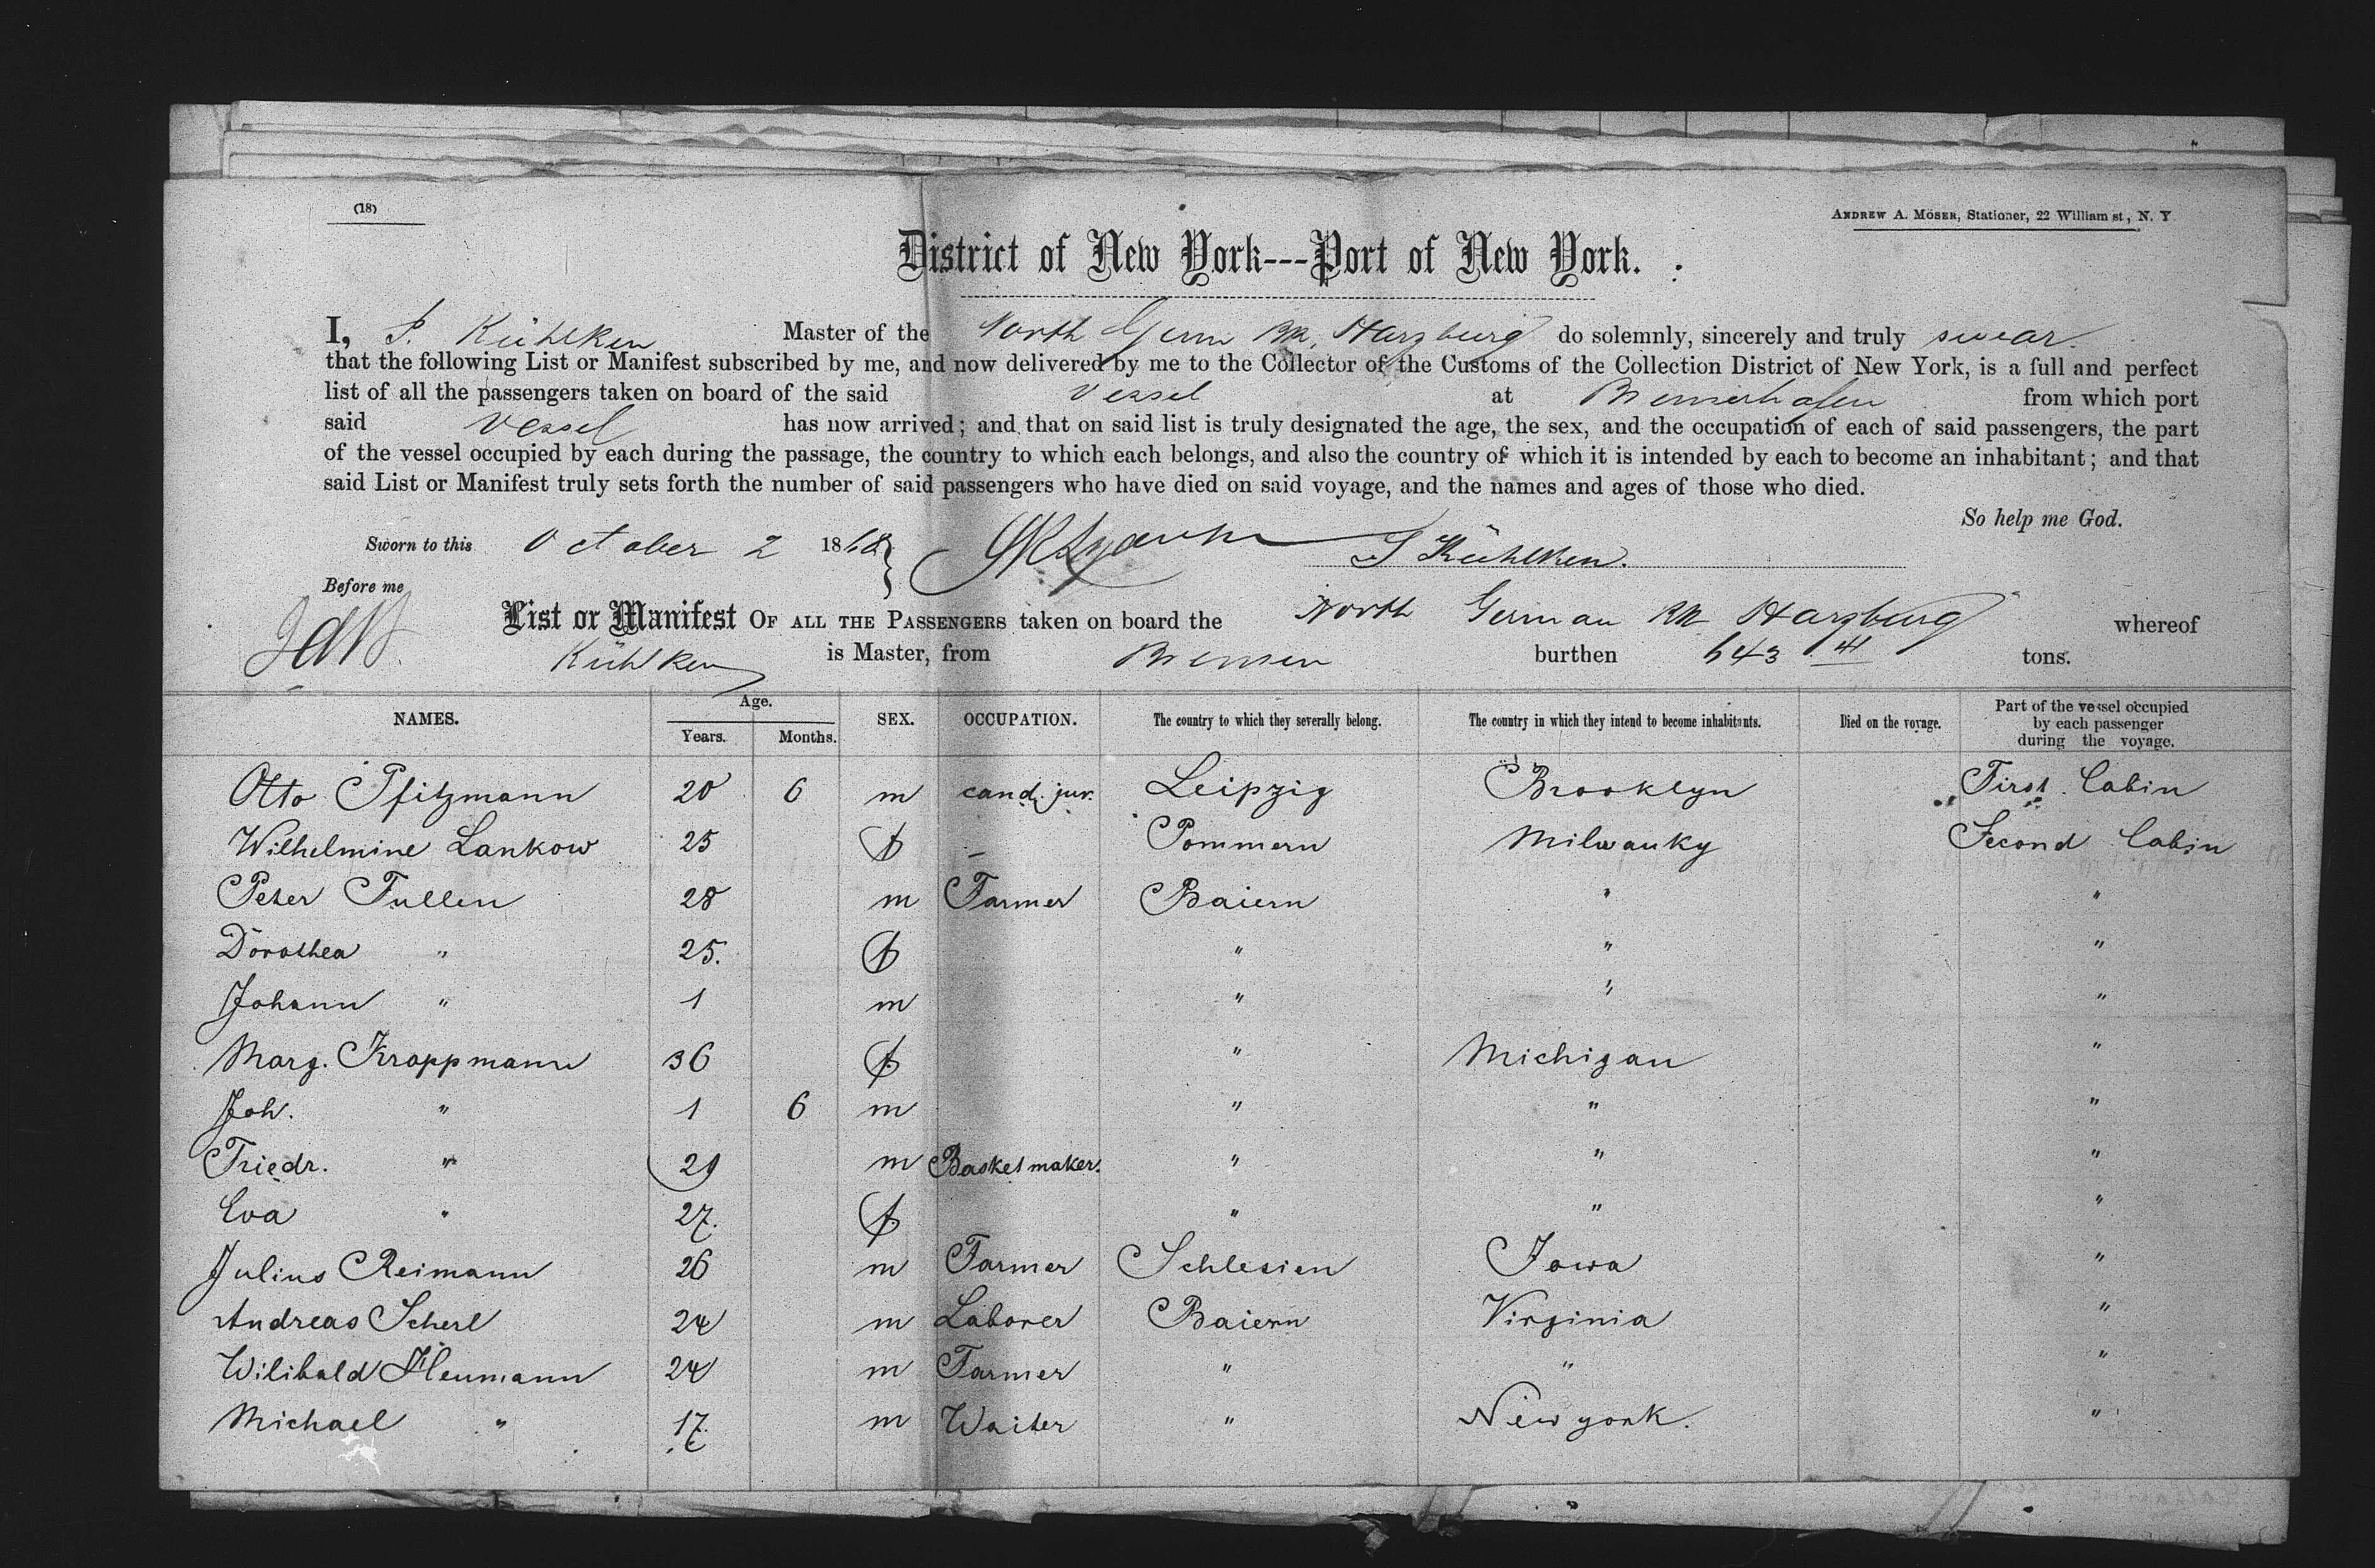 (18)
ANDREW A. MÖSER, Stationer, 22 William st, N. Y
District of New York---Port of New York.
I, Kühlken Master of the North Germ Harzburg do solemnly, sincerely and truly swear.
that the following List or Manifest subscribed by me, and now delivered by me to the Collector of the Customs of the Collection District of New York, is a full and perfect
list of all the passengers taken on board of the said Vessel at Bremerhafen from which port
said Vessel has now arrived; and that on said list is truly designated the age, the sex, and the occupation of each of said passengers, the part
of the vessel occupied by each during the passage, the country to which each belongs, and also the country of which it is intended by each to become an inhabitant; and that
said List or Manifest truly sets forth the number of said passengers who have died on said voyage, and the names and ages of those who died.
So help me God.
Sworn to this October 2 1868 Kühlken.
Before me
List or Manifest OF ALL THE PASSENGERS taken on board the North German Harzburg whereof
Kühlken is Master, from Bremen burthen 643 tons.
NAMES. Age. Years. Months. SEX. OCCUPATION. The country to which they severally belong. The country in which they intend to become inhabitants. Died on the voyage. Part of the vessel occupied by each passenger during the voyage.
Otto Pfitzmann 20 6 m cand. jur. Leipzig Brooklyn First Cabin
Wilhelmine Lankow 25 f — Pommern Milwauky Second Cabin
Peter Fullen 28 m Farmer Baiern " "
Dorothea " 25. f " " "
Johann " 1 m " " "
Marg. Kroppmann 36 f " Michigan "
Joh. " 1 6 m " " "
Friedr. " 29 m Basketmaker. " " "
Eva " 27. f " " "
Julius Reimann 26 m Farmer Schlesien Iowa "
Andreas Scherl 24 m Laborer Baiern Virginia "
Wilibald Heumann 24 m Farmer " " "
Michael " 17. m Waiter " New york. "